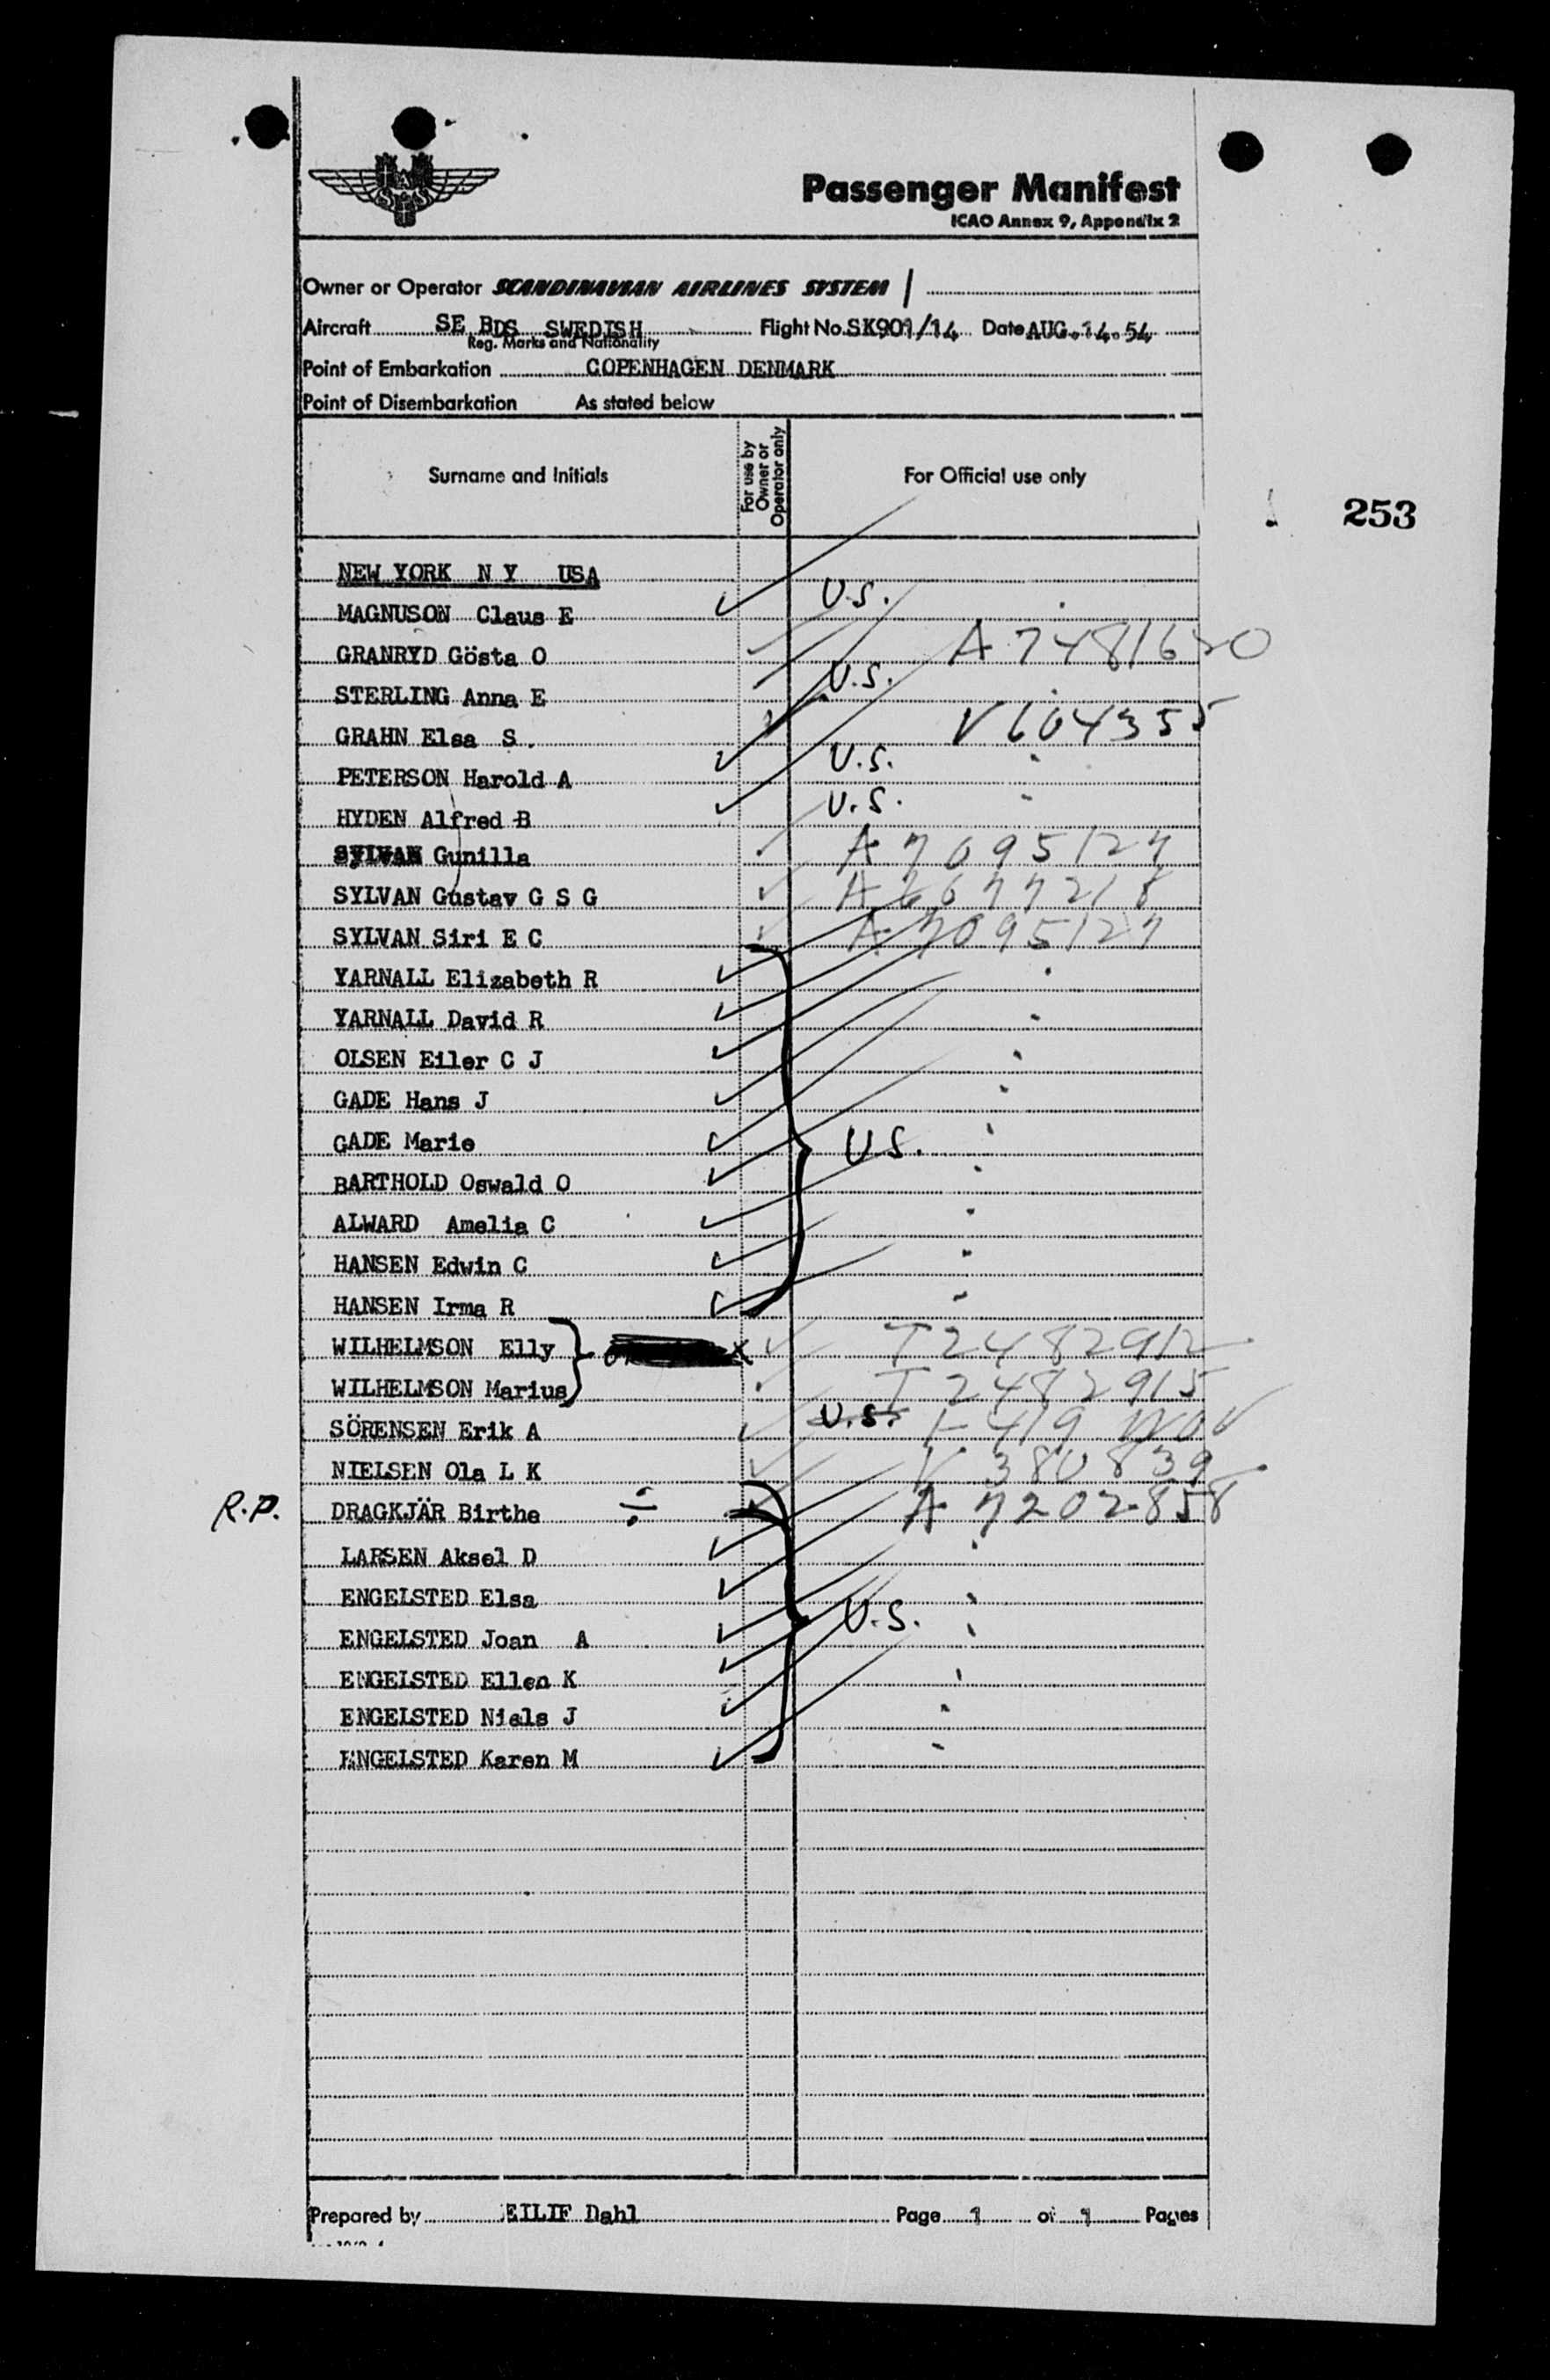 SAS
Passenger Manifest
ICAO Annex 9, Appendix 2
Owner or Operator SCANDINAVIAN AIRLINES SYSTEM
Aircraft SE BDS SWEDISH Flight No. SK901/14 Date AUG. 14. 54
Reg. Marks and Nationality
Point of Embarkation COPENHAGEN DENMARK
Point of Disembarkation As stated below
Surname and Initials For use by Owner or Operator only For Official use only
253
NEW YORK N Y USA
MAGNUSON Claus E U.S.
GRANRYD Gösta O
STERLING Anna E U.S.
GRAHN Elsa S. V604355
PETERSON Harold A U.S.
HYDEN Alfred B U.S.
SYLVAN Gunilla A7095127
SYLVAN Gustav G S G A6677218
SYLVAN Siri E C A7095127
YARNALL Elizabeth R
YARNALL David R
OLSEN Eiler C J
GADE Hans J
GADE Marie U.S.
BARTHOLD Oswald O
ALWARD Amelia C
HANSEN Edwin C
HANSEN Irma R
WILHELMSON Elly T2482912
WILHELMSON Marius T2482915
SÖRENSEN Erik A U.S.
NIELSEN Ola L K V380839
R.P. DRAGKJÄR Birthe ÷ A7202858
LARSEN Aksel D
ENGELSTED Elsa
ENGELSTED Joan A U.S.
ENGELSTED Ellen K
ENGELSTED Niels J
ENGELSTED Karen M
Prepared by EILIF Dahl Page 1 of 1 Pages